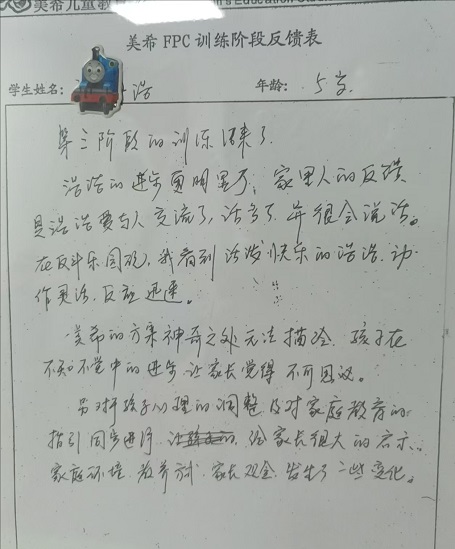 美希儿童教
's Education
美希 FPC 训练阶段反馈表
学生姓名: 浩 年龄: 5岁.
第三阶段的训练结束了.
浩浩的进步更明显了,家里人的反馈
是浩浩爱与人交流了,话多了.并很会说话。
在反斗乐园玩,我看到活泼快乐的浩浩.动
作灵活.反应迅速。
美希的方案神奇之处无法描绘.孩子在
不知不觉中的进步.让家长觉得不可思议。
另对于孩子心理的调整及对家庭教育的
指引同步进行.给家长很大的启示.
家庭环境.教养方式.家长观念.发生了一些变化。